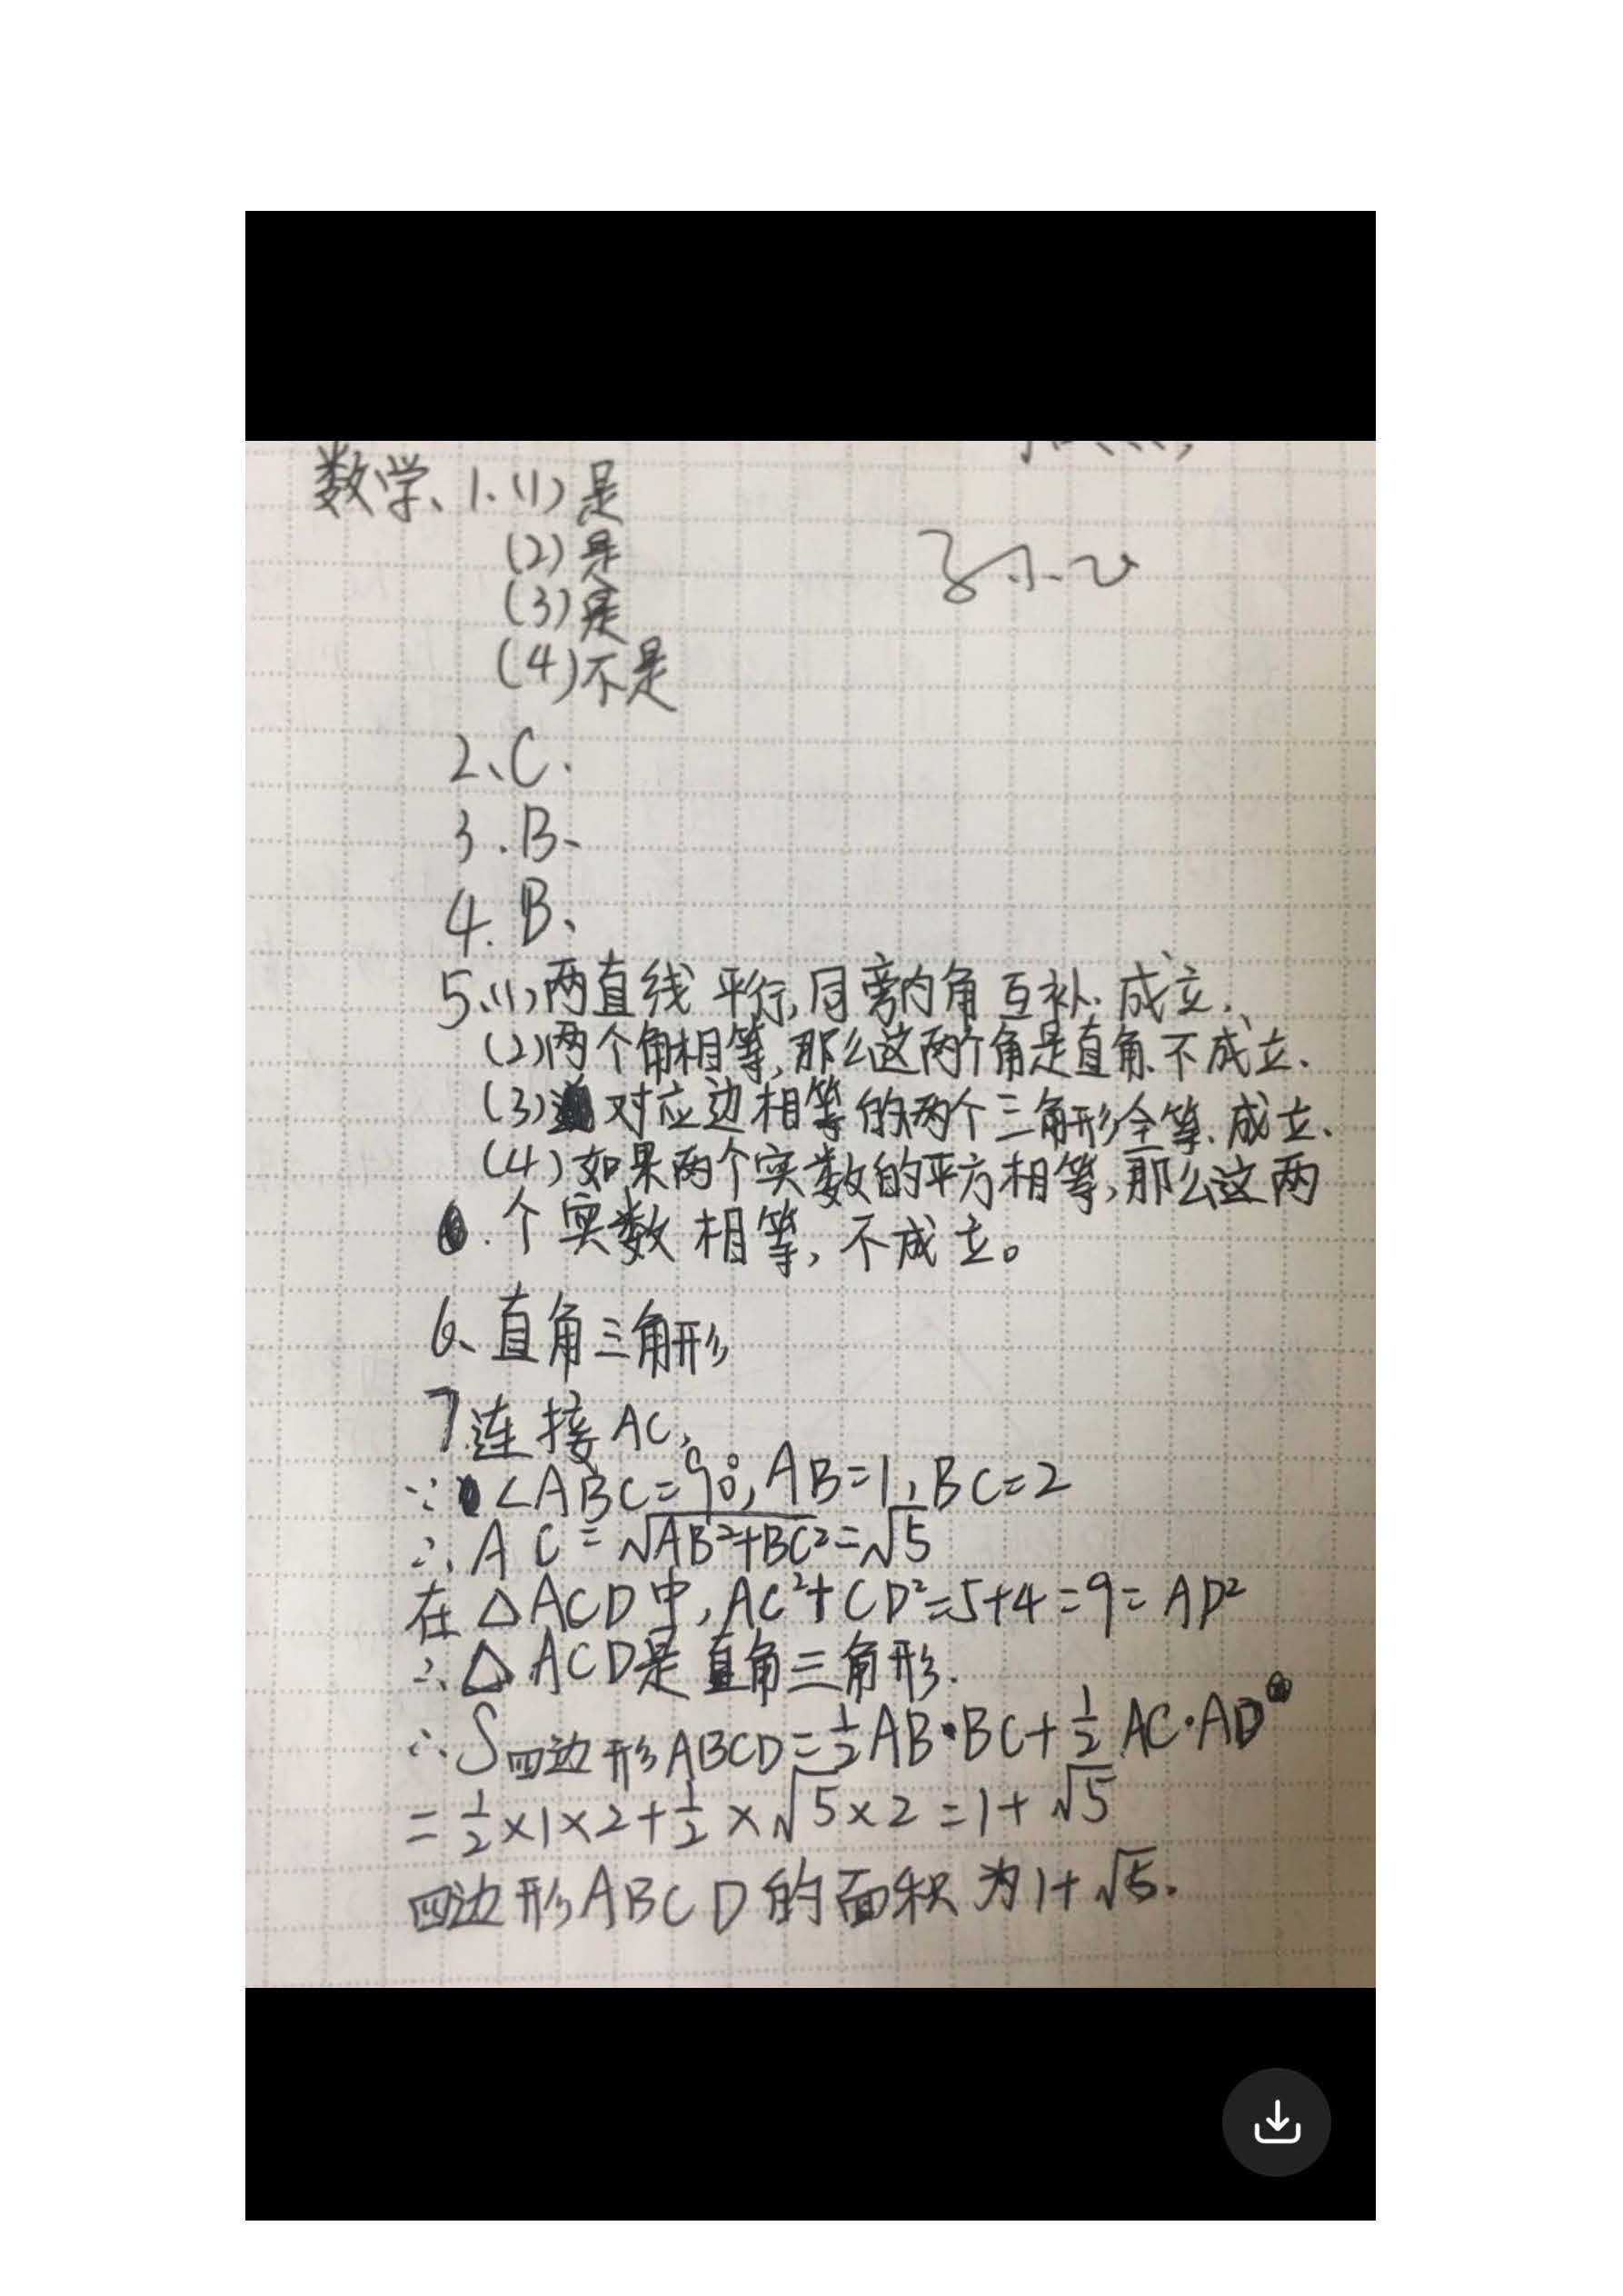 数学、1、(1)是
(2)是
(3)是
(4)不是
2、C.
3.B、
4.B、
5、(1)两直线平行,同旁内角互补.成立.
(2)两个角相等,那么这两个角是直角.不成立.
(3)对应边相等的两个三角形全等.成立.
(4)如果两个实数的平方相等,那么这两
个实数相等,不成立。
6、直角三角形
7.连接AC,
∵∠ABC=90°,AB=1,BC=2
∴AC=√AB²+BC²=√5
在△ACD中,AC²+CD²=5+4=9=AD²
∴△ACD是直角三角形.
∴S四边形ABCD=1/2AB·BC+1/2AC·AD
=1/2×1×2+1/2×√5×2=1+√5
四边形ABCD的面积为1+√5.